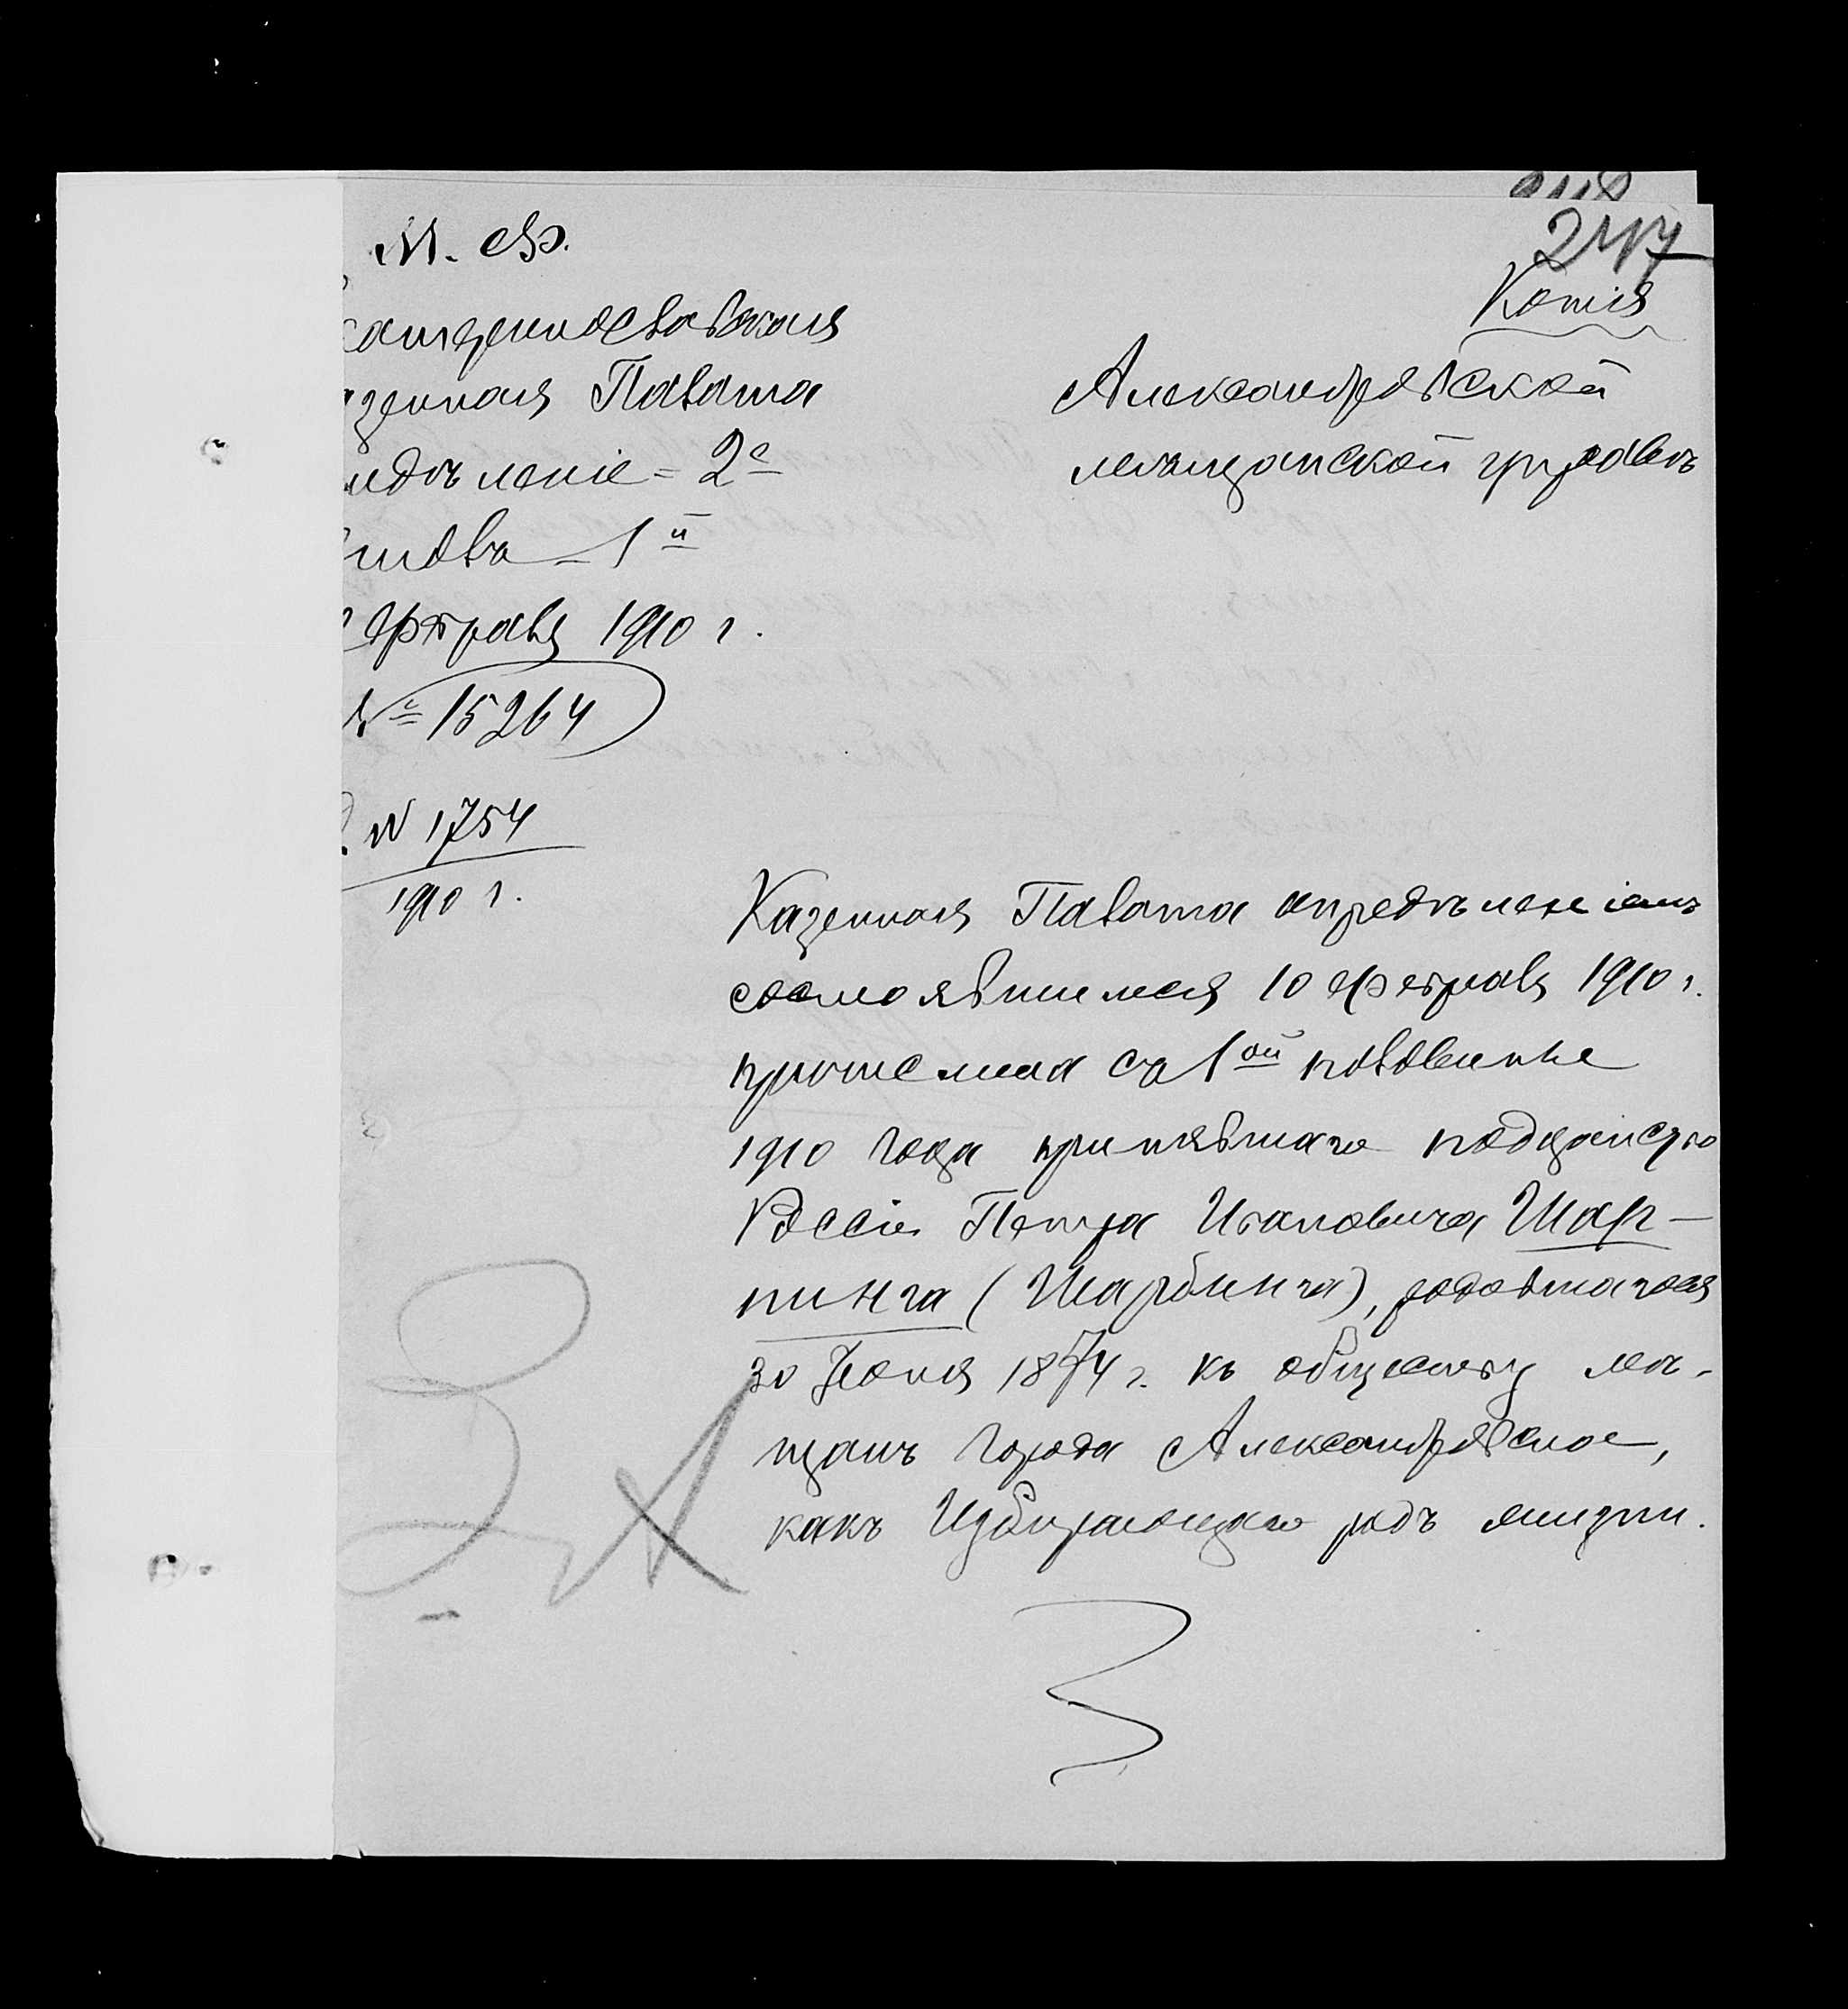 247
Копія
М. Ф.
катеринославская
азенная Палата
тдѣленіе = 2е
Столъ 1й
Февраля 1910 г.
№ 15264
N 1754
1910 г.
Александровской
мѣщанской управѣ
Казенная Палата опредѣленіемъ
состоявшимся 10 Февраля 1910 г.
причислила съ 1ой половины
1910 года принявшаго подданство
Россіи Петра Ивановича Шар-
пинга (Шарбинга), родовшагося
30 Іюня 1874 г. къ обществу мѣ-
щанъ города Александровска,
какъ избирающаго родъ жизни.